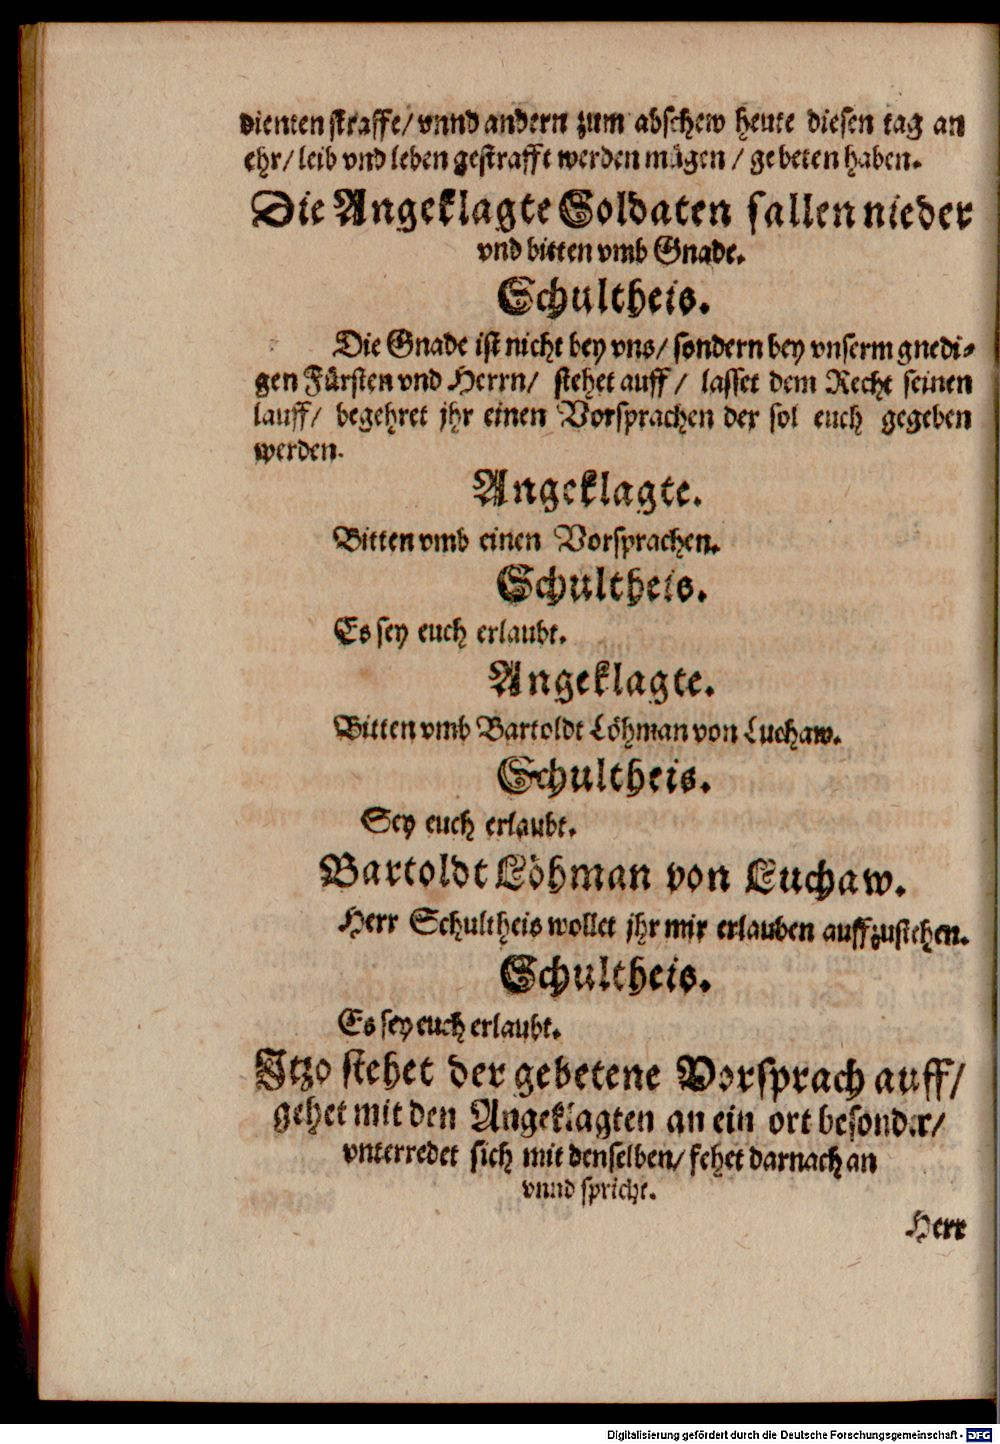 dienten straffe/ vnnd andern zum abschew heute diesen tag an
ehr/ leib vnd leben gestrafft werden mügen / gebeten haben.
Die Angeklagte Soldaten fallen nieder
vnd bitten vmb Gnade.
Schultheis.
Die Gnade ist nicht bey vns/ sondern bey vnserm gnedi-
gen Fürsten vnd Herrn/ stehet auff / lasset dem Recht seinen
lauff/ begehret jhr einen Vorsprachen der sol euch gegeben
werden.
Angeklagte.
Bitten vmb einen Vorsprachen.
Schultheis.
Es sey euch erlaubt.
Angeklagte.
Bitten vmb Bartoldt Löhman von Luchaw.
Schultheis.
Sey euch erlaubt.
Bartoldt Löhman von Luchaw.
Herr Schultheis wollet jhr mir erlauben auffzustehen.
Schultheis.
Es sey euch erlaubt.
Itzo stehet der gebetene Vorsprach auff/
gehet mit den Angeklagten an ein ort besonder/
vnterredet sich mit denselben/ fehet darnach an
vnnd spricht.
Herr
Digitalisierung gefördert durch die Deutsche Forschungsgemeinschaft - DFG